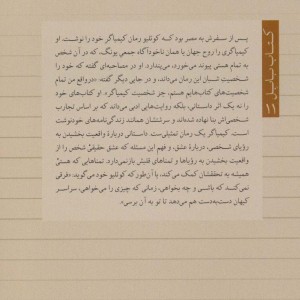 کتاب نیلی
پس از سفرش به مصر بود که کوئلیو رمان کیمیاگر خود را نوشت. او
کیمیاگری را روح جهان یا همان ناخودآگاه جمعی یونگ، که در آن شخص
به تمام هستی پیوند می‌خورد، می‌پندارد. او در مصاحبه‌ای گفته که خود را
شخصیت شبان این رمان می‌داند، و در جایی دیگر گفته «درواقع من تمام
شخصیت‌های کتاب‌هایم هستم، جز شخصیت کیمیاگر». او کتاب‌های خود
را نه یک اثر داستانی، بلکه روایت‌هایی ادبی می‌داند که بر اساس تجارب
شخصی‌اش بنا نهاده شده‌اند و سرشتشان همانند زندگی‌نامه‌های خودنوشت
است. کیمیاگر یک رمان تمثیلی‌ست. داستانی دربارهٔ واقعیت بخشیدن به
رؤیای شخصی، دربارهٔ عشق، و فهم این مسئله که عشق حقیقیِ شخص از
واقعیت بخشیدن به رؤیاها و تمناهای قلبش بازنمی‌دارد. تمناهایی که هستی
همیشه به تحققشان کمک می‌کند، یا آن‌طور که کوئلیو خود می‌گوید، «فرقی
نمی‌کند که باشی و چه بخواهی، زمانی که چیزی را می‌خواهی، سراسر
کیهان دست‌به‌دست هم می‌دهد تا تو به آن برسی».